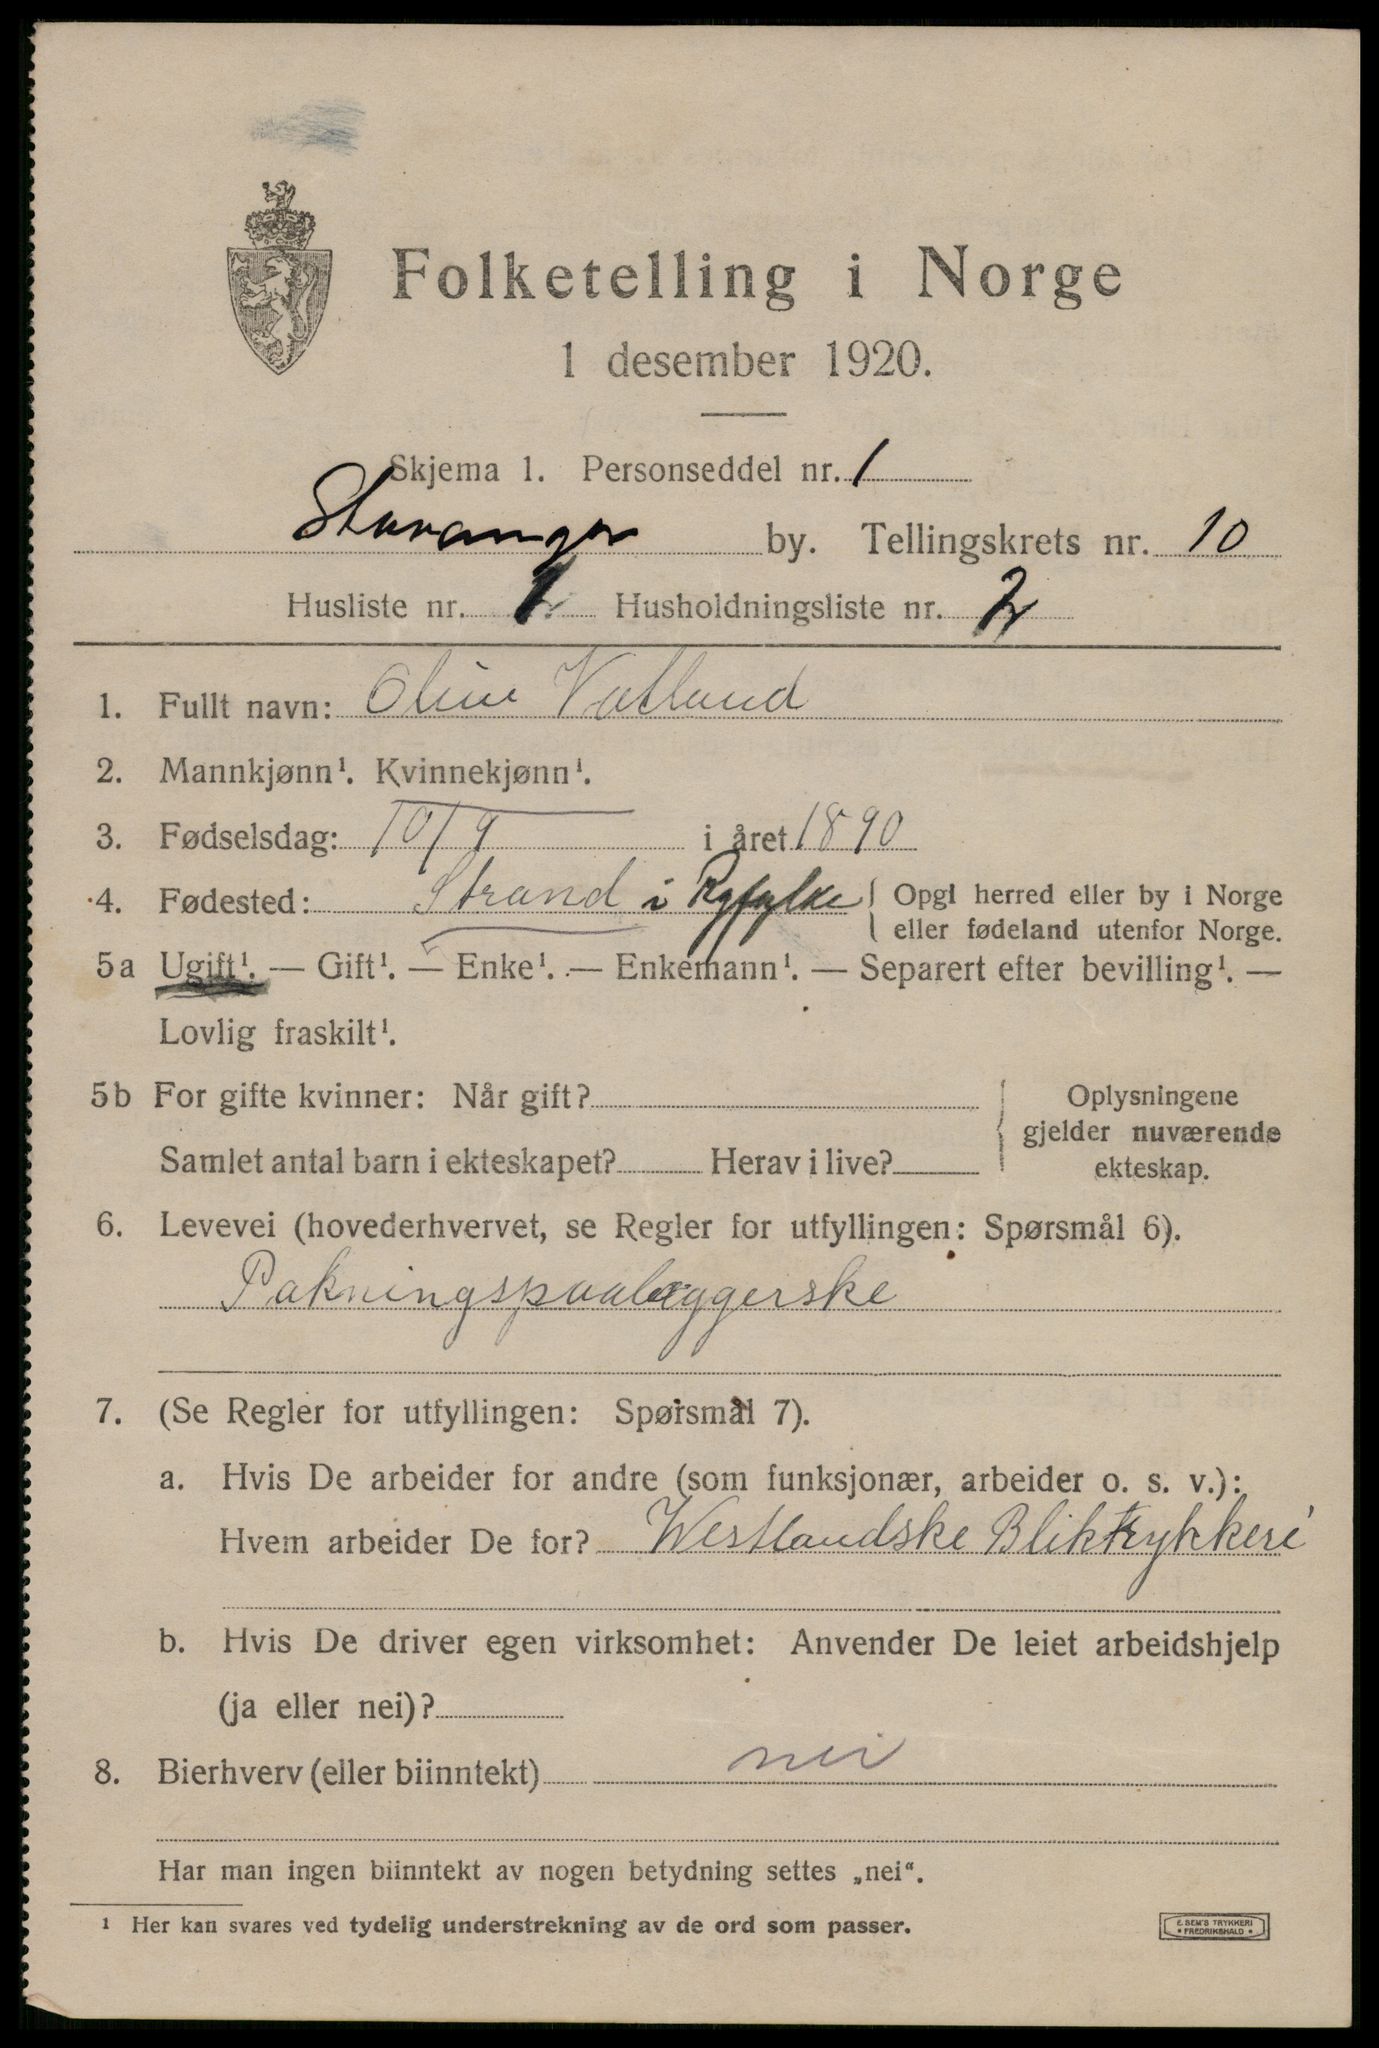 Folketelling i Norge
1 desember 1920.
Skjema 1. Personseddel nr. 1
Stavanger by. Tellingskrets nr. 10
Husliste nr. Husholdningsliste nr. 2
1. Fullt navn: Oline Vatland
2. Mannkjønn¹. Kvinnekjønn¹.
3. Fødselsdag: 10/9 i året 1890
4. Fødested: Strand i Ryfylke { Opgi herred eller by i Norge
eller fødeland utenfor Norge.
5a Ugift¹. — Gift¹. — Enke¹. — Enkemann¹. — Separert efter bevilling¹. —
Lovlig fraskilt¹.
5b For gifte kvinner: Når gift? { Oplysningene
gjelder nuværende
Samlet antal barn i ekteskapet? Herav i live? ekteskap.
6. Levevei (hovederhvervet, se Regler for utfyllingen: Spørsmål 6).
Pakningspaalæggerske
7. (Se Regler for utfyllingen: Spørsmål 7).
a. Hvis De arbeider for andre (som funksjonær, arbeider o. s. v.):
Hvem arbeider De for? Westlandske Bliktrykkeri
b. Hvis De driver egen virksomhet: Anvender De leiet arbeidshjelp
(ja eller nei)?
8. Bierhverv (eller biinntekt) nei
Har man ingen biinntekt av nogen betydning settes „nei“.
1 Her kan svares ved tydelig understrekning av de ord som passer.
E. SEM'S TRYKKERI
• FREDRIKSHALD •